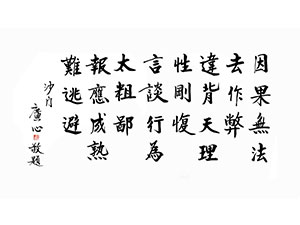 因果無法
去作弊
違背天理
性剛愎
言談行為
太粗鄙
報應成熟
難逃避
沙門
廣心
敬題